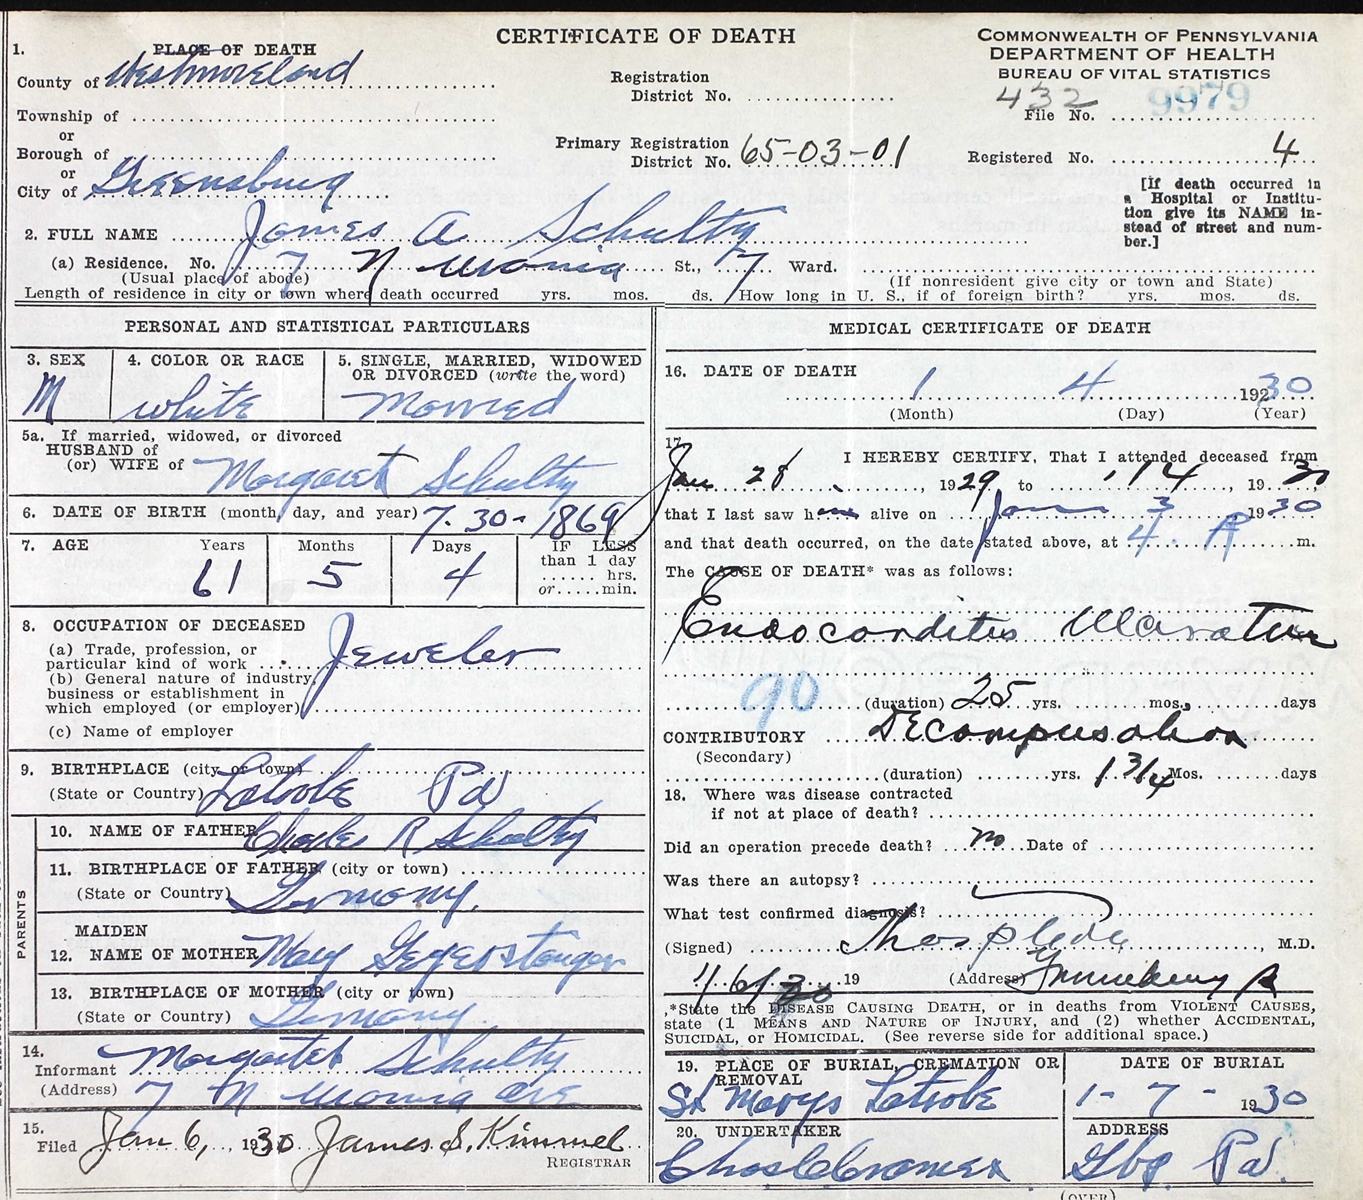 1. PLACE OF DEATH
CERTIFICATE OF DEATH
COMMONWEALTH OF PENNSYLVANIA
DEPARTMENT OF HEALTH
BUREAU OF VITAL STATISTICS
County of Westmoreland
Registration
District No.
432 9979
File No.
Township of
or
Borough of
or
City of Greensburg
Primary Registration
District No. 65-03-01
Registered No. 4
[If death occurred in
a Hospital or Institu-
tion give its NAME in-
stead of street and num-
ber.]
2. FULL NAME James A Schultz
(a) Residence. No. 7, N Urania St., 7 Ward.
(Usual place of abode) (If nonresident give city or town and State)
Length of residence in city or town where death occurred yrs. mos. ds. How long in U. S., if of foreign birth? yrs. mos. ds.
PERSONAL AND STATISTICAL PARTICULARS
3. SEX 4. COLOR OR RACE 5. SINGLE, MARRIED, WIDOWED
OR DIVORCED (write the word)
M white Married
5a. If married, widowed, or divorced
HUSBAND of
(or) WIFE of Margaret Schultz
6. DATE OF BIRTH (month, day, and year) 7-30-1869
7. AGE Years Months Days IF LESS
than 1 day
61 5 4 ...... hrs.
or.....min.
8. OCCUPATION OF DECEASED
(a) Trade, profession, or
particular kind of work Jeweler
(b) General nature of industry,
business or establishment in
which employed (or employer)
(c) Name of employer
9. BIRTHPLACE (city or town)
(State or Country) Latrobe Pa
PARENTS
10. NAME OF FATHER Charles R Schultz
11. BIRTHPLACE OF FATHER (city or town)
(State or Country) Germany.
MAIDEN
12. NAME OF MOTHER Mary Geyerstanger
13. BIRTHPLACE OF MOTHER (city or town)
(State or Country) Germany
14.
Informant Margaret Schultz
(Address) 7 N Urania Ave
15.
Filed Jan 6, 1930 James S. Kimmel
REGISTRAR
MEDICAL CERTIFICATE OF DEATH
16. DATE OF DEATH
1 4 1930
(Month) (Day) (Year)
17.
I HEREBY CERTIFY, That I attended deceased from
Jan 28, 1929 to 1/4, 1930
that I last saw him alive on Jan 3 1930
and that death occurred, on the date stated above, at 4. A m.
The CAUSE OF DEATH* was as follows:
Endocarditis
90 (duration) 25 yrs. mos. days
CONTRIBUTORY Decompensation
(Secondary)
(duration) yrs. 1 3/4 Mos. days
18. Where was disease contracted
if not at place of death?
Did an operation precede death? no Date of
Was there an autopsy?
What test confirmed diagnosis?
(Signed) Thos M.D.
1/6/30 19 (Address) Greensburg Pa
*State the DISEASE CAUSING DEATH, or in deaths from VIOLENT CAUSES,
state (1 MEANS AND NATURE OF INJURY, and (2) whether ACCIDENTAL,
SUICIDAL, or HOMICIDAL. (See reverse side for additional space.)
19. PLACE OF BURIAL, CREMATION OR
REMOVAL
St Marys Latrobe
DATE OF BURIAL
1-7-1930
20. UNDERTAKER
Chas C Cramer
ADDRESS
Gbg Pa.
(OVER)